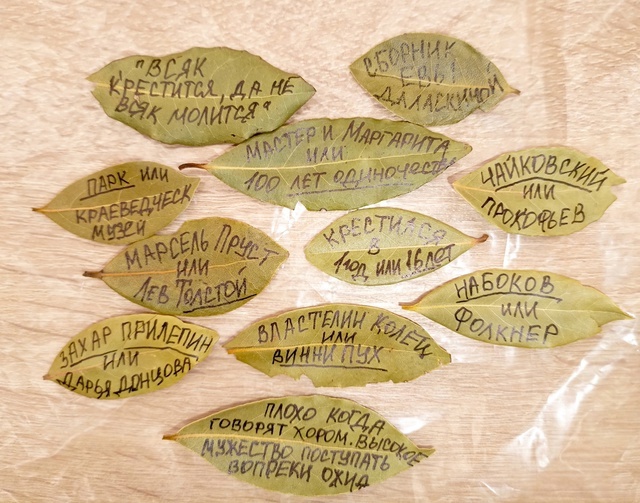 "ВСЯК
КРЕСТИТСЯ, ДА НЕ
ВСЯК МОЛИТСЯ"
СБОРНИК
ЕВЫ
ДАЛАСКИНОЙ
МАСТЕР И МАРГАРИТА
ИЛИ
100 ЛЕТ ОДИНОЧЕСТВ
ПАРК ИЛИ
КРАЕВЕДЧЕСК
МУЗЕЙ
ЧАЙКОВСКИЙ
ИЛИ
ПРОКОФЬЕВ
МАРСЕЛЬ ПРУСТ
ИЛИ
ЛЕВ ТОЛСТОЙ
КРЕСТИЛСЯ
В
1 ГОД ИЛИ 16 ЛЕТ
НАБОКОВ
ИЛИ
ФОЛКНЕР
ЗАХАР ПРИЛЕПИН
ИЛИ
ДАРЬЯ ДОНЦОВА
ВЛАСТЕЛИН КОЛЕЦ
ИЛИ
ВИННИ ПУХ
ПЛОХО КОГДА
ГОВОРЯТ ХОРОМ. ВЫСОКОЕ
МУЖЕСТВО ПОСТУПАТЬ
ВОПРЕКИ ОЖИД